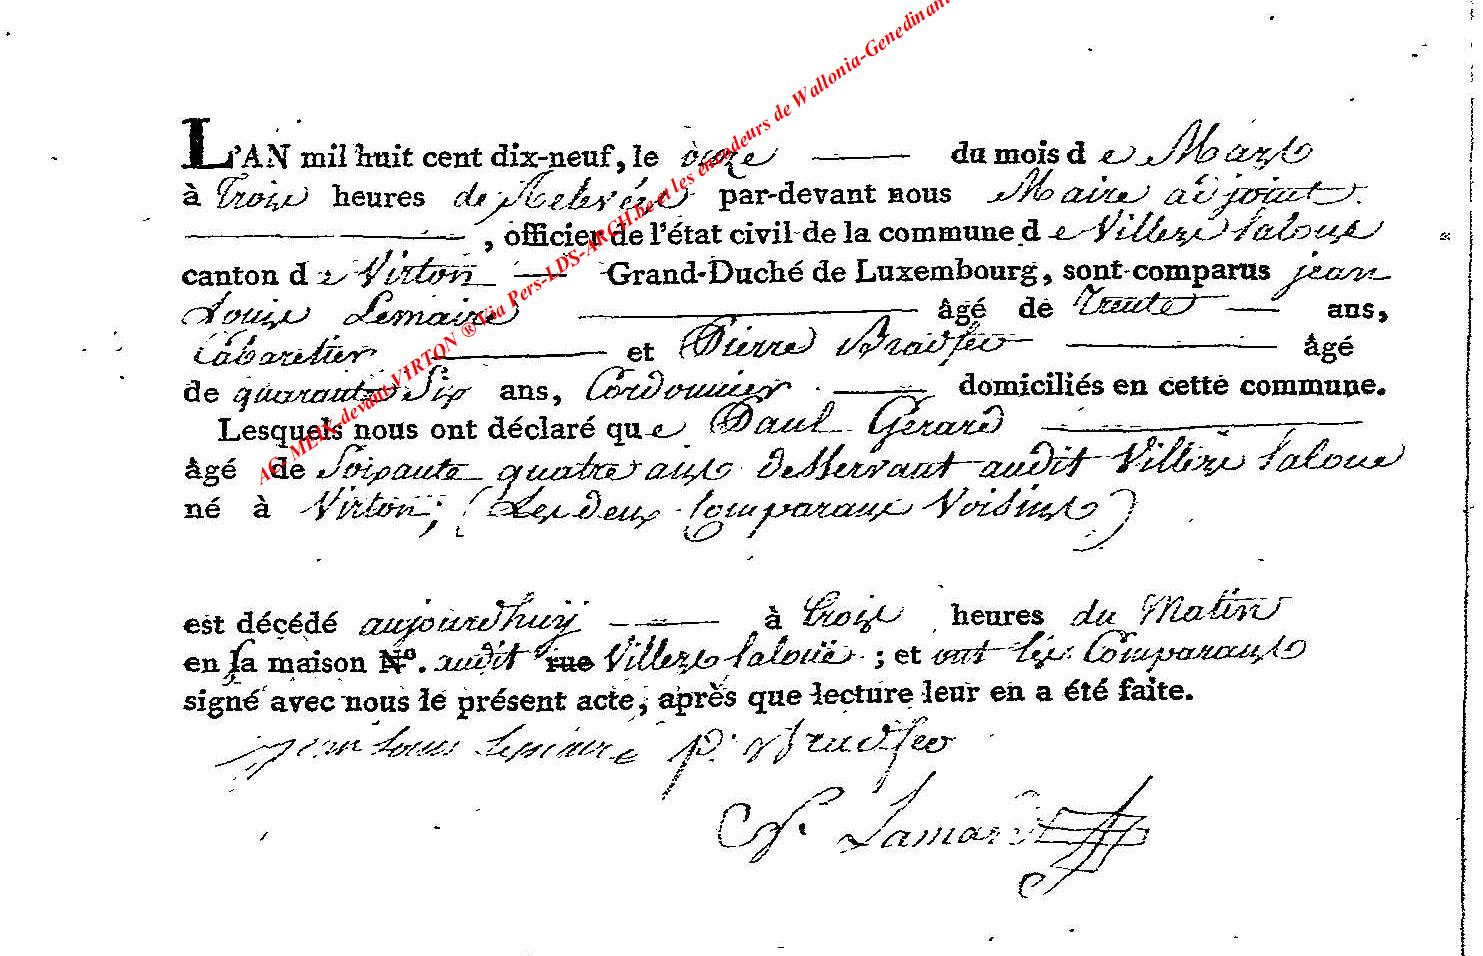 L'AN mil huit cent dix-neuf, le onze du mois de Mars
à Trois heures de Relevée par-devant nous Maire adjoint
, officier de l'état civil de la commune de Villers laloue
canton de Virton Grand-Duché de Luxembourg, sont comparus jean
Louis Lemaire âgé de trente ans,
Cabaretier et Pierre âgé
de quarante Six ans, Cordonnier domiciliés en cette commune.
Lesquels nous ont déclaré que Paul Gérard
âgé de Soixante quatre ans desservant audit Villers laloue
né à Virton; (Les deux Comparans Voisins)
est décédé aujourdhuy à trois heures du Matin
en sa maison N°. audit rue Villers laloue ; et ont les Comparans
signé avec nous le présent acte, après que lecture leur en a été faite.
jean louis lemaire p.
AG. MEIX-devant-VIRTON ® Via Pers-LDS-ARCH.be et les encodeurs de Wallonia-Genedinant